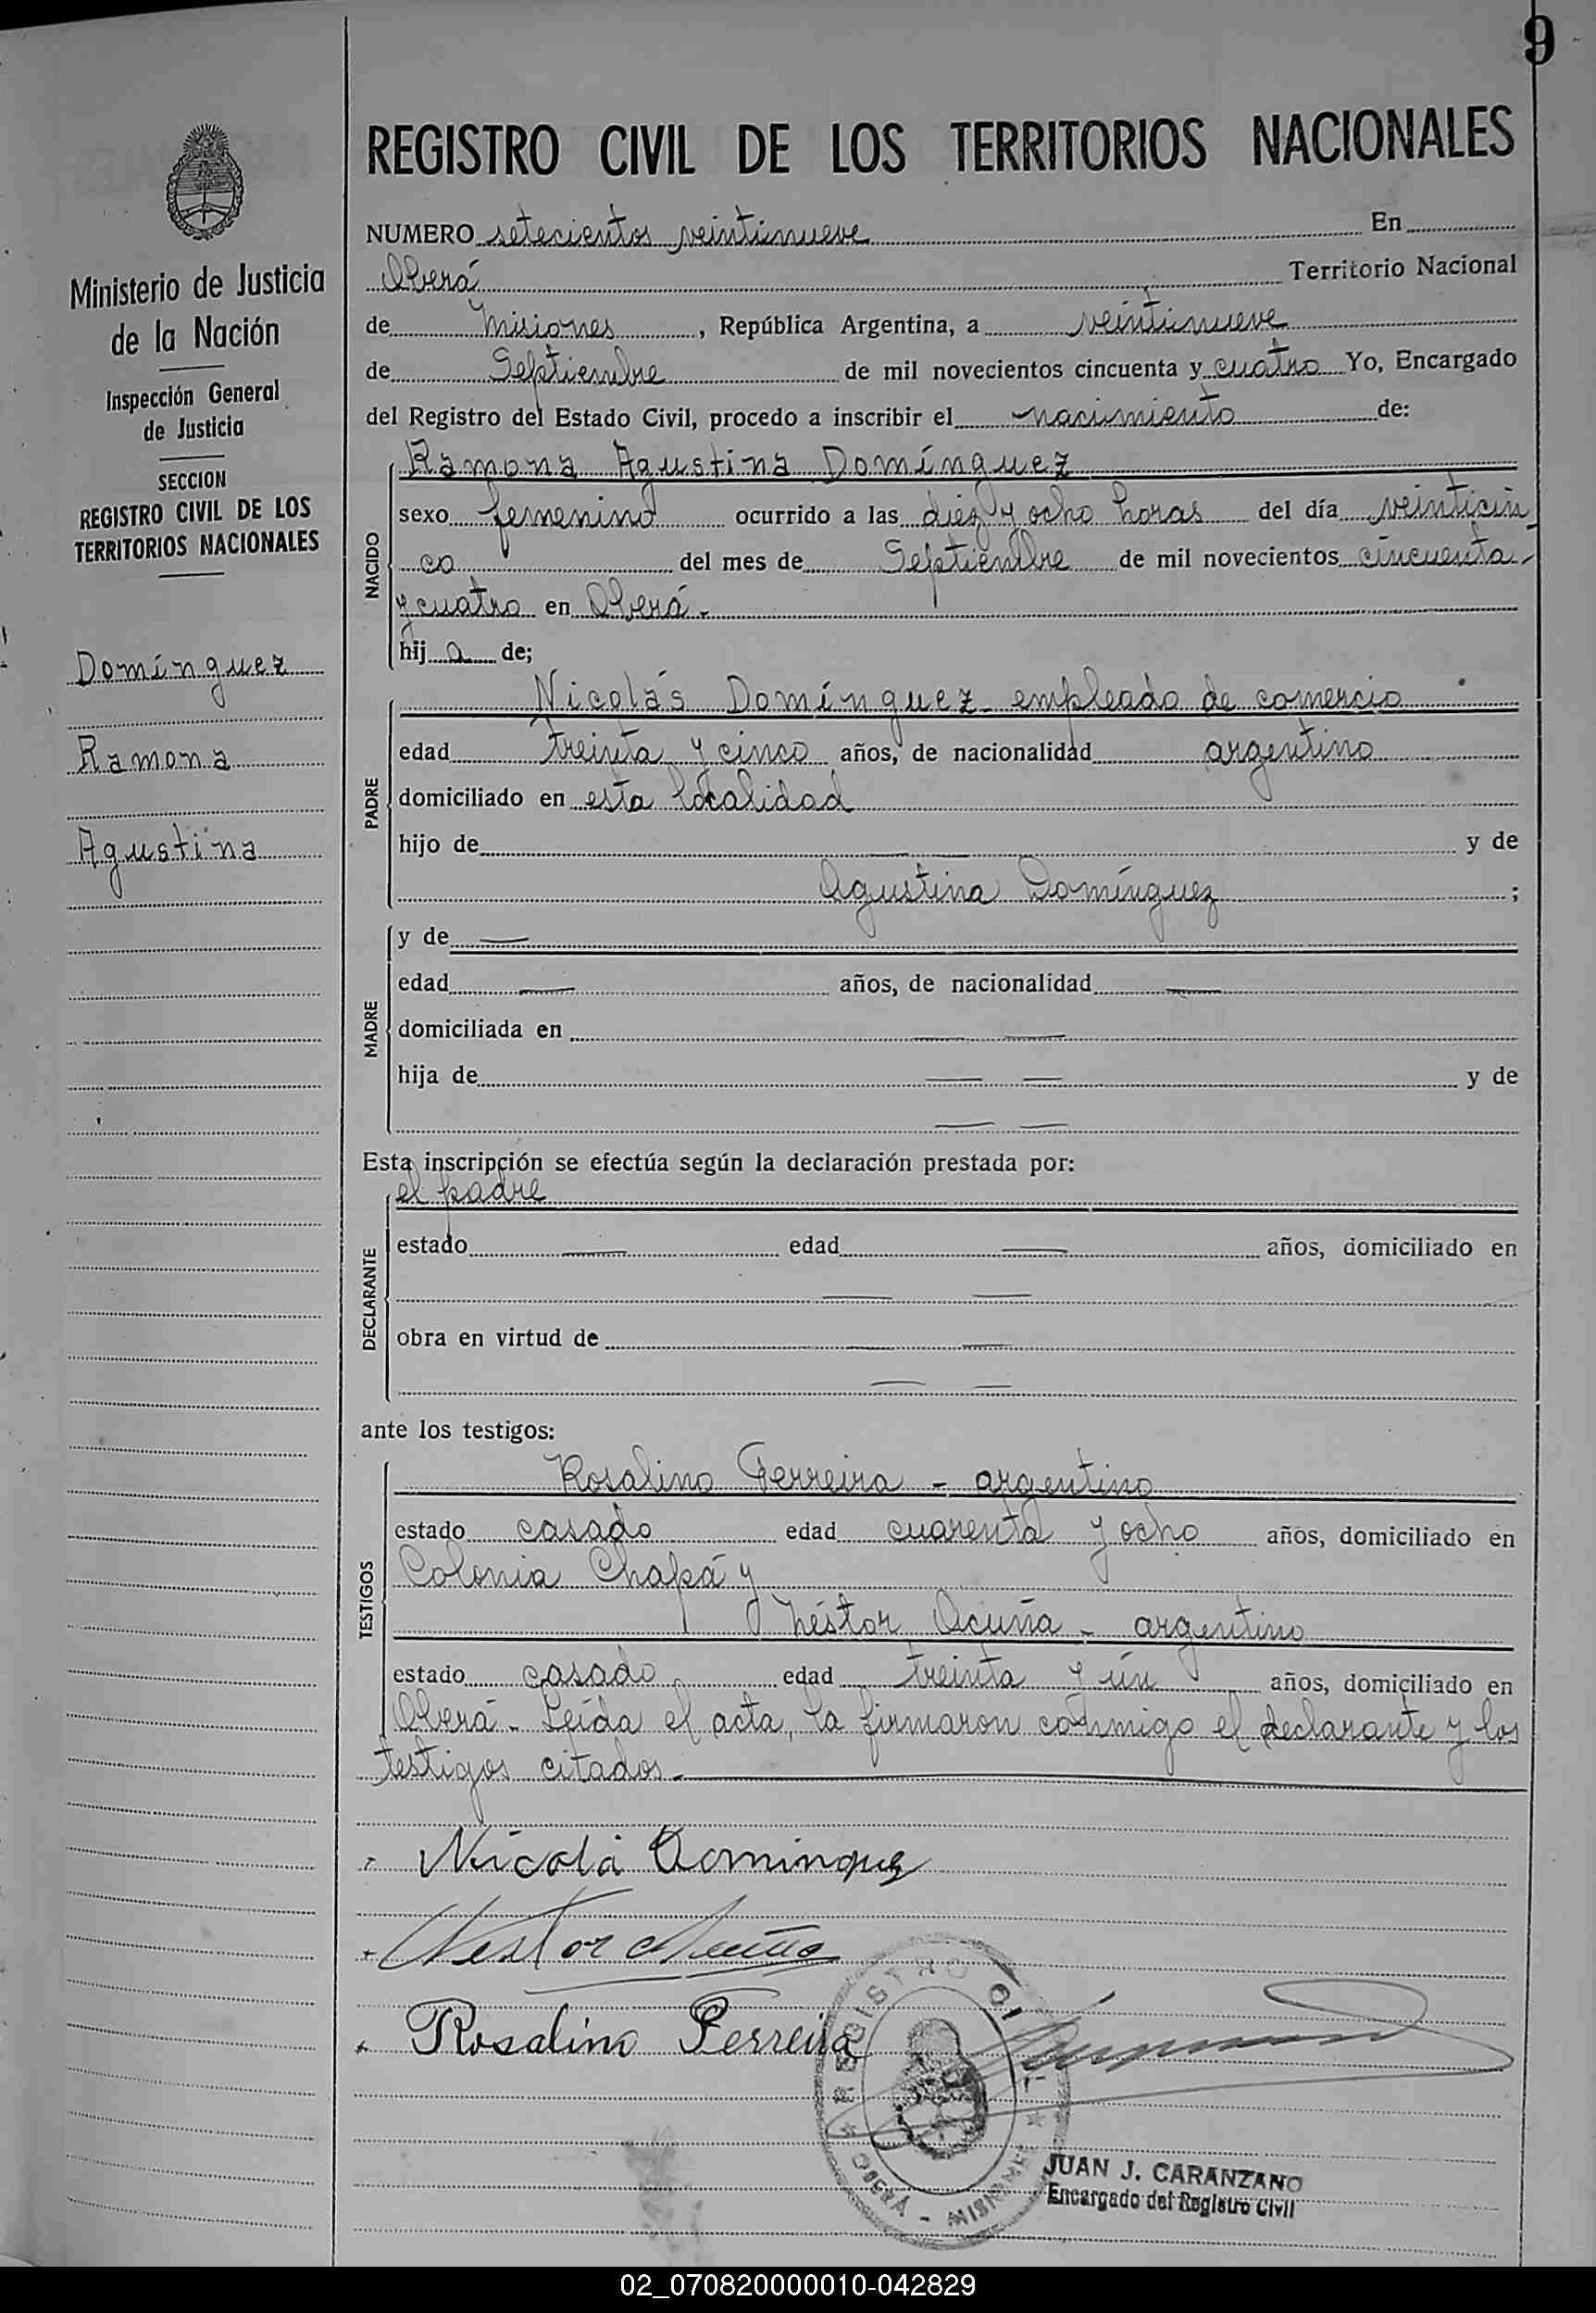 9
REGISTRO CIVIL DE LOS TERRITORIOS NACIONALES
Ministerio de Justicia
de la Nación
Inspección General
de Justicia
SECCION
REGISTRO CIVIL DE LOS
TERRITORIOS NACIONALES
Domínguez
Ramona
Agustina
NUMERO setecientos veintinueve En
Oberá Territorio Nacional
de Misiones, República Argentina, a veintinueve
de Septiembre de mil novecientos cincuenta y cuatro Yo, Encargado
del Registro del Estado Civil, procedo a inscribir el nacimiento de:
NACIDO
Ramona Agustina Domínguez
sexo femenino ocurrido a las diez y ocho horas del día veinticin
co del mes de Septiembre de mil novecientos cincuenta
y cuatro en Oberá.-
hij a de;
PADRE
Nicolás Domínguez - empleado de comercio
edad treinta y cinco años, de nacionalidad argentino
domiciliado en esta localidad
hijo de — — y de
Agustina Domínguez ;
MADRE
y de —
edad — años, de nacionalidad —
domiciliada en — —
hija de — — y de
— —
Esta inscripción se efectúa según la declaración prestada por:
DECLARANTE
el padre
estado — edad — años, domiciliado en
— —
obra en virtud de — —
— —
ante los testigos:
TESTIGOS
Rosalino Ferreira - argentino
estado casado edad cuarenta y ocho años, domiciliado en
Colonia Chapá y
Néstor Acuña - argentino
estado casado edad treinta y ún años, domiciliado en
Oberá - Leída el acta, la firmaron conmigo el declarante y los
testigos citados.-
Nicola Dominquez
Nestor Acuña
Rosalino Ferreira
REGISTRO CIVIL
OBERÁ - MISIONES
JUAN J. CARANZANO
Encargado del Registro Civil
02_070820000010-042829